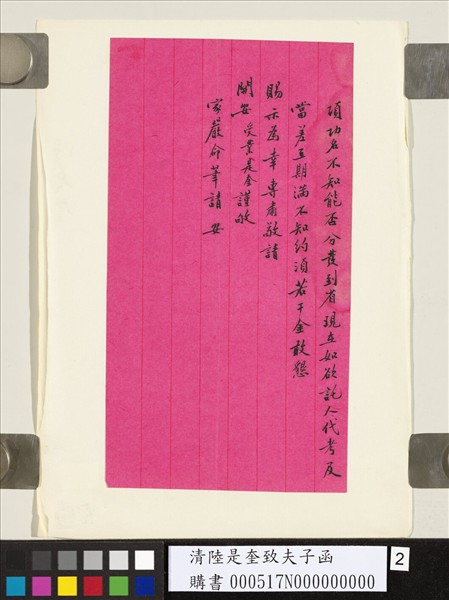 項功名不知能否分發到省現在如欲託人代考及
當差至期滿不知約須若干金敢懇
賜示為幸專肅敬請
開安受業是金謹啟
家嚴命筆請安
清陸是奎致夫子函
購書 000517N000000000
2